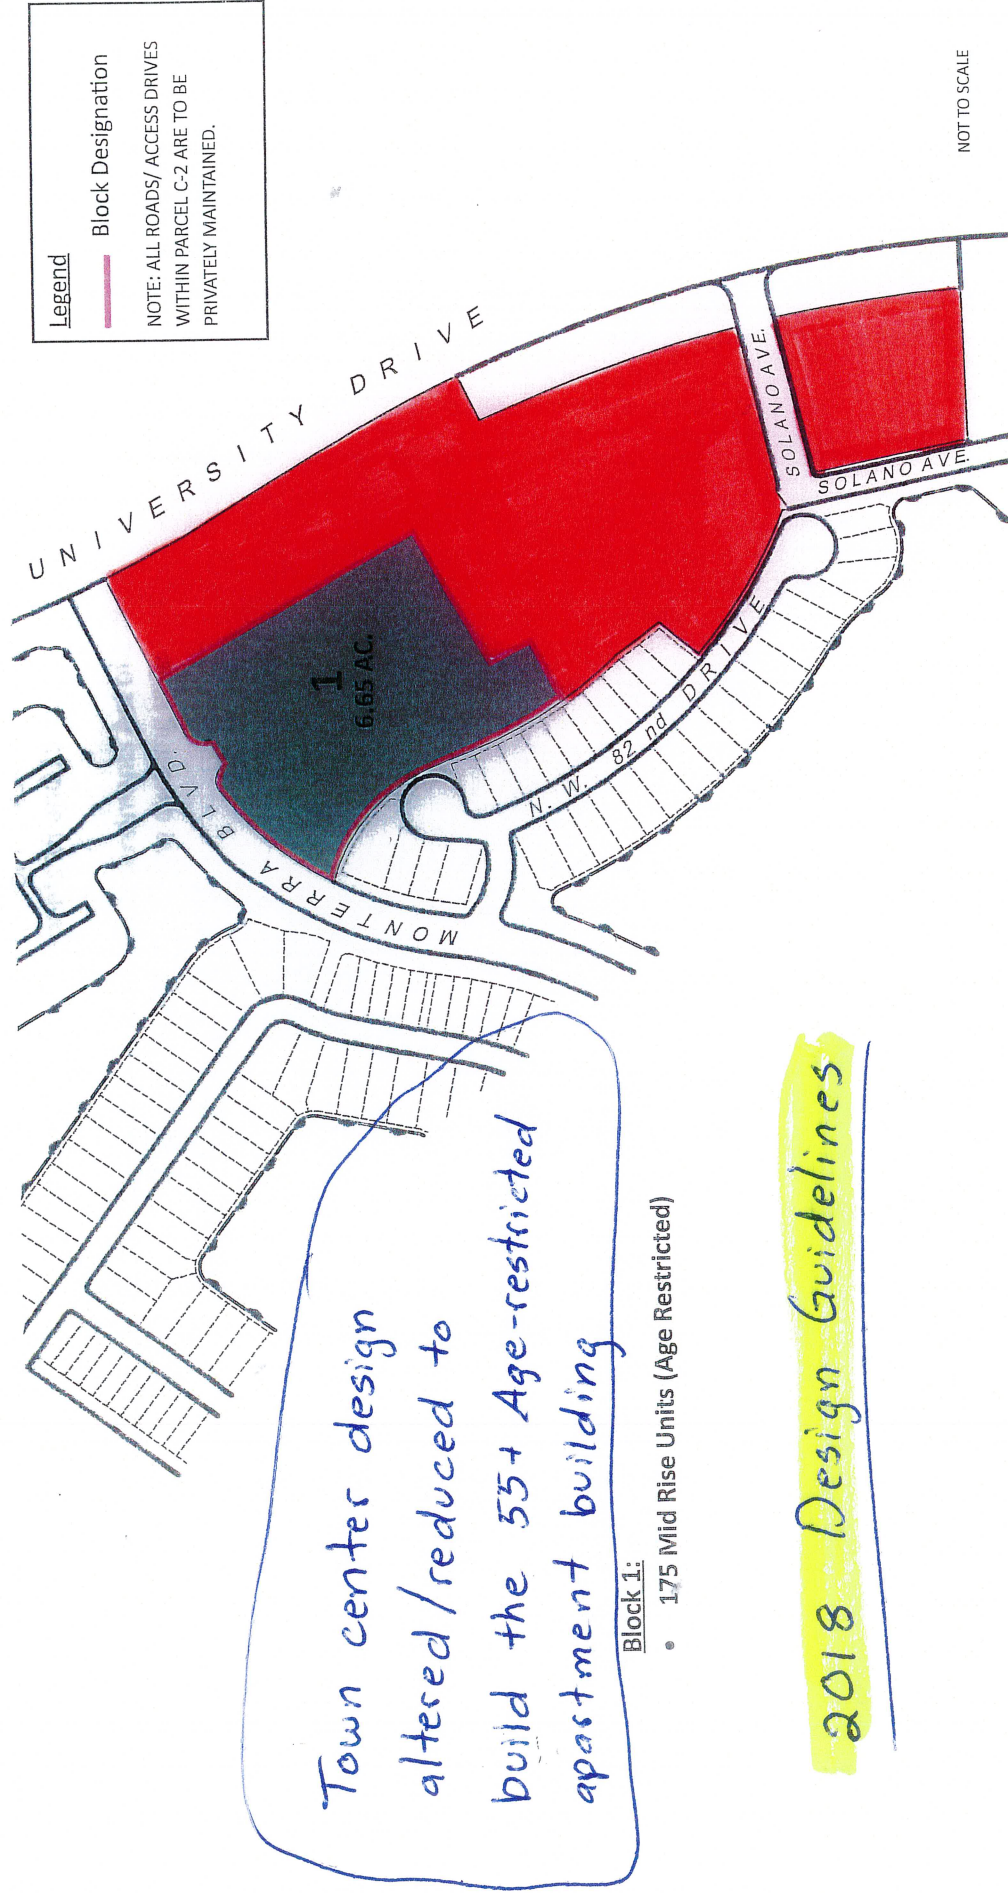 Legend
Block Designation
NOTE: ALL ROADS/ ACCESS DRIVES
WITHIN PARCEL C-2 ARE TO BE
PRIVATELY MAINTAINED.
UNIVERSITY DRIVE
MONTERRA BLVD
1
6.65 AC.
N. W. 82 nd DRIVE
SOLANO AVE.
SOLANO AVE.
NOT TO SCALE
Town center design
altered/reduced to
build the 55+ Age-restricted
apartment building
Block 1:
• 175 Mid Rise Units (Age Restricted)
2018 Design Guidelines